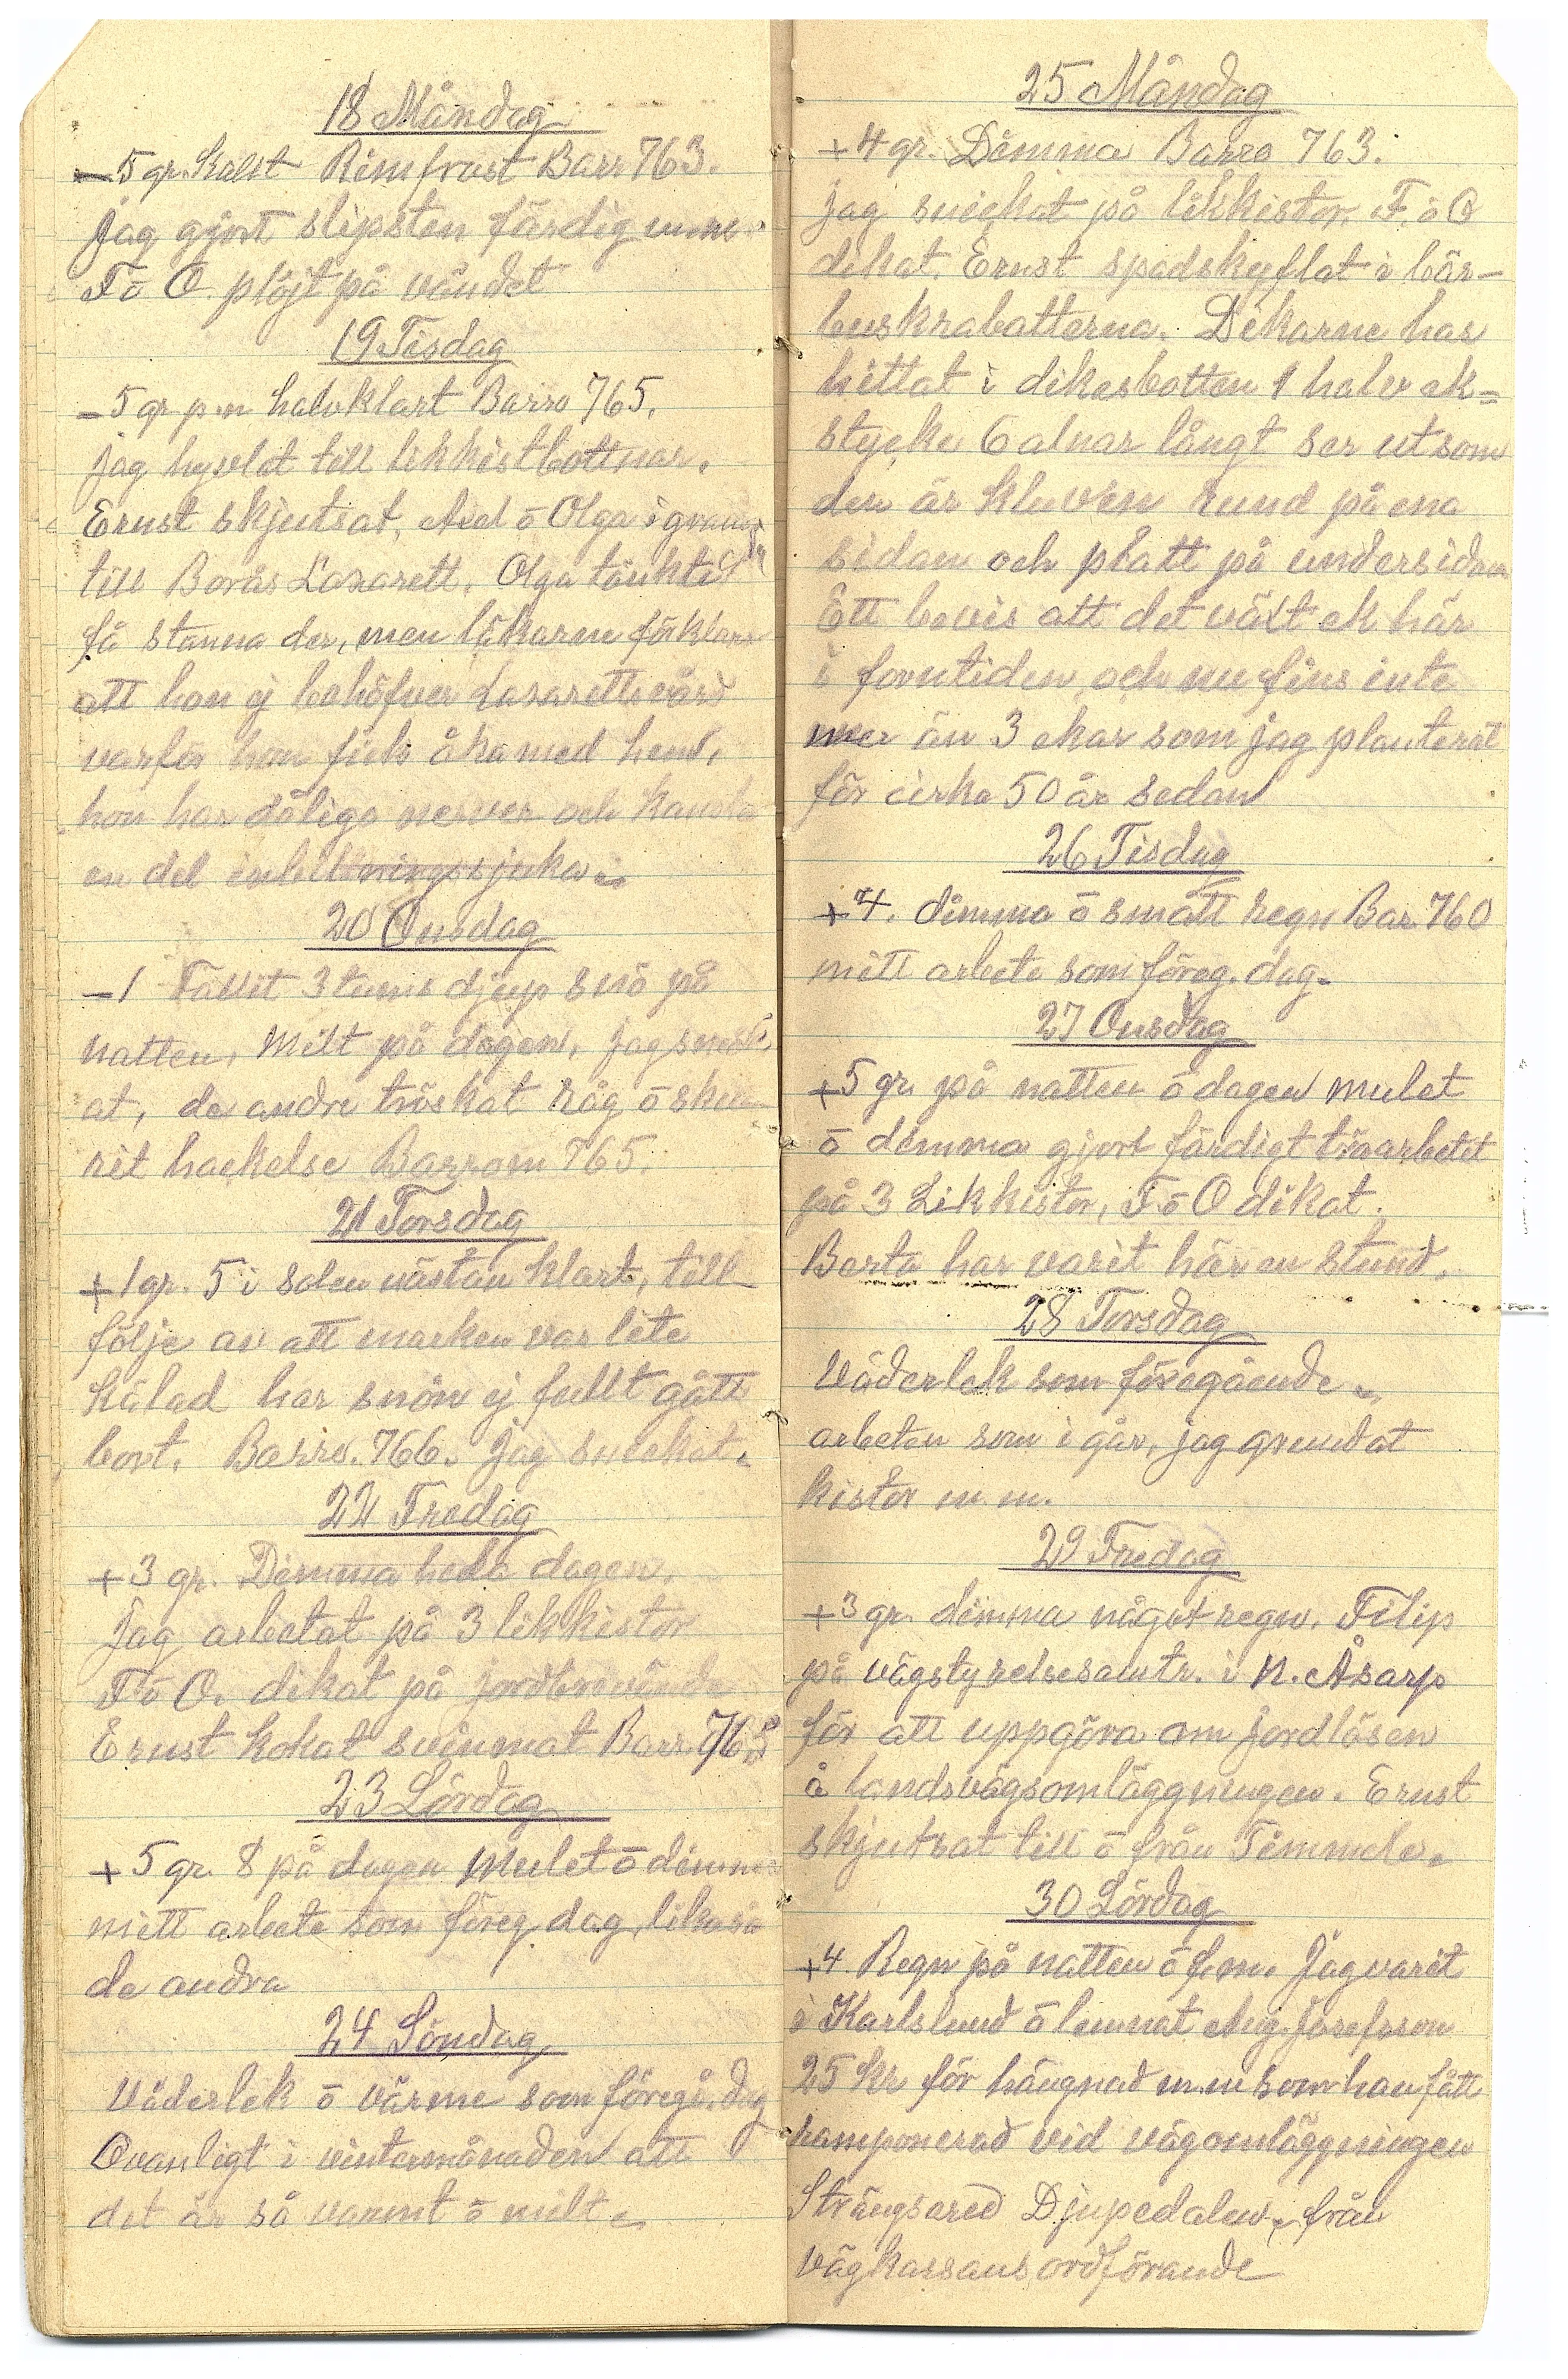 18 Måndag
-5 gr. kalst Rimfrost Barr 763.
jag gjort slipsten färdig m.m.
F ō O. plöjt på våndet
19 Tisdag
-5 gr p.n halvklart Barro 765.
jag hyvlat till likkistbottnar.
Ernst skjutsat, Axel ō Olga i
till Borås Lazarett. Olga tänkte
få stanna der, men läkarne förklara
att hon ej behöfver Lazarettsvård
varför hon fick åka med hem,
hon har dåliga nerver och kanske
en del inbillningssjuka.
20 Onsdag
-1 Fallit 3 tums djup snö på
natten, Milt på dagen, jag snick
at, de andra tröskat råg ō sku
rit hackelse Barrom 765.
21 Torsdag
+1 gr. 5 i solen nästan klart, till
följe av att marken var lite
kälad har snön ej fullt gått
bort. Barro. 766. jag snickat.
22 Fredag
+3 gr. Dimma hela dagen.
Jag arbetat på 3 likkistor
F ō O. dikat på
Ernst kokat svinmat Barr. 765
23 Lördag
+5 gr. 8 på dagen Mulet ō dimma
mitt arbete som föreg. dag, likaså
de andra
24 Söndag
Väderlek ō värme som föregå. dag
Ovanligt i vintermånaden att
det är så varmt ō milt.
25 Måndag
+4 gr. Dimma Barro 763.
jag snickat på likkistor. F ō O
dikat. Ernst spadskyflat i bär-
buskrabatterna. Dikarne har
hittat i dikesbotten 1 halv ek=
stycke 6 alnar långt ser ut som
den är kluven rund på ena
sidan och platt på undersidan
Ett bevis att det växt ek här
i forntiden, och nu fins inte
mer än 3 ekar som jag planterat
för cirka 50 år sedan
26 Tisdag
+4. dimma ō smått regn Bar. 760
mitt arbete som föreg. dag.
27 Onsdag
+5 gr. på natten ō dagen mulet
ō dimma gjort färdigt träarbetet
på 3 Likkistor, F ō O dikat.
Berta har varit här en stund.
28 Torsdag
Väderlek som föregående.
arbeten som i går, jag grundat
kistor m.m.
29 Fredag
+3 gr. dimma något regn. Filip
på vägstyrelsesamtr. i N. Åsarp
för att uppgöra om jordlösen
å landsvägsomläggningen. Ernst
skjutsat till ō från Timmele.
30 Lördag
+4. Regn på natten ō f.m. Jag varit
i Karlslund ō lemnat Aug. Josefsson
25 kr för hängnad m.m som han fått
ramponerad vid vägomläggningen
Strängsered Djupedalen, från
vägkassans ordförande